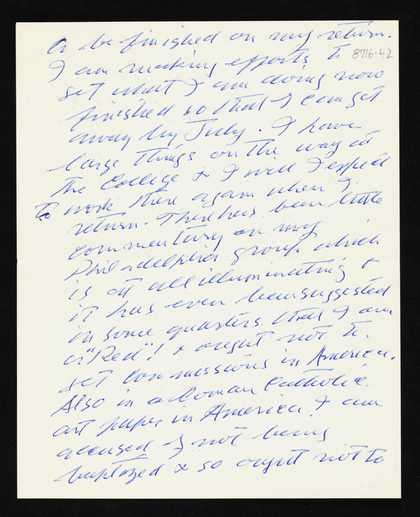 to be finished on my return.
I am making efforts to
8716-42
get what I am doing now
finished so that I can get
away by July. I have
large things on the way at
the College & I will expect
to work there again when I
return. There has been little
commentary on my
Philadelphia group which
is at all illuminating &
it has even been suggested
in some quarters that I am
a "Red"! & ought not to
get commissions in America.
Also in a Roman Catholic
art paper in America I am
accused of not being
baptized & so ought not to